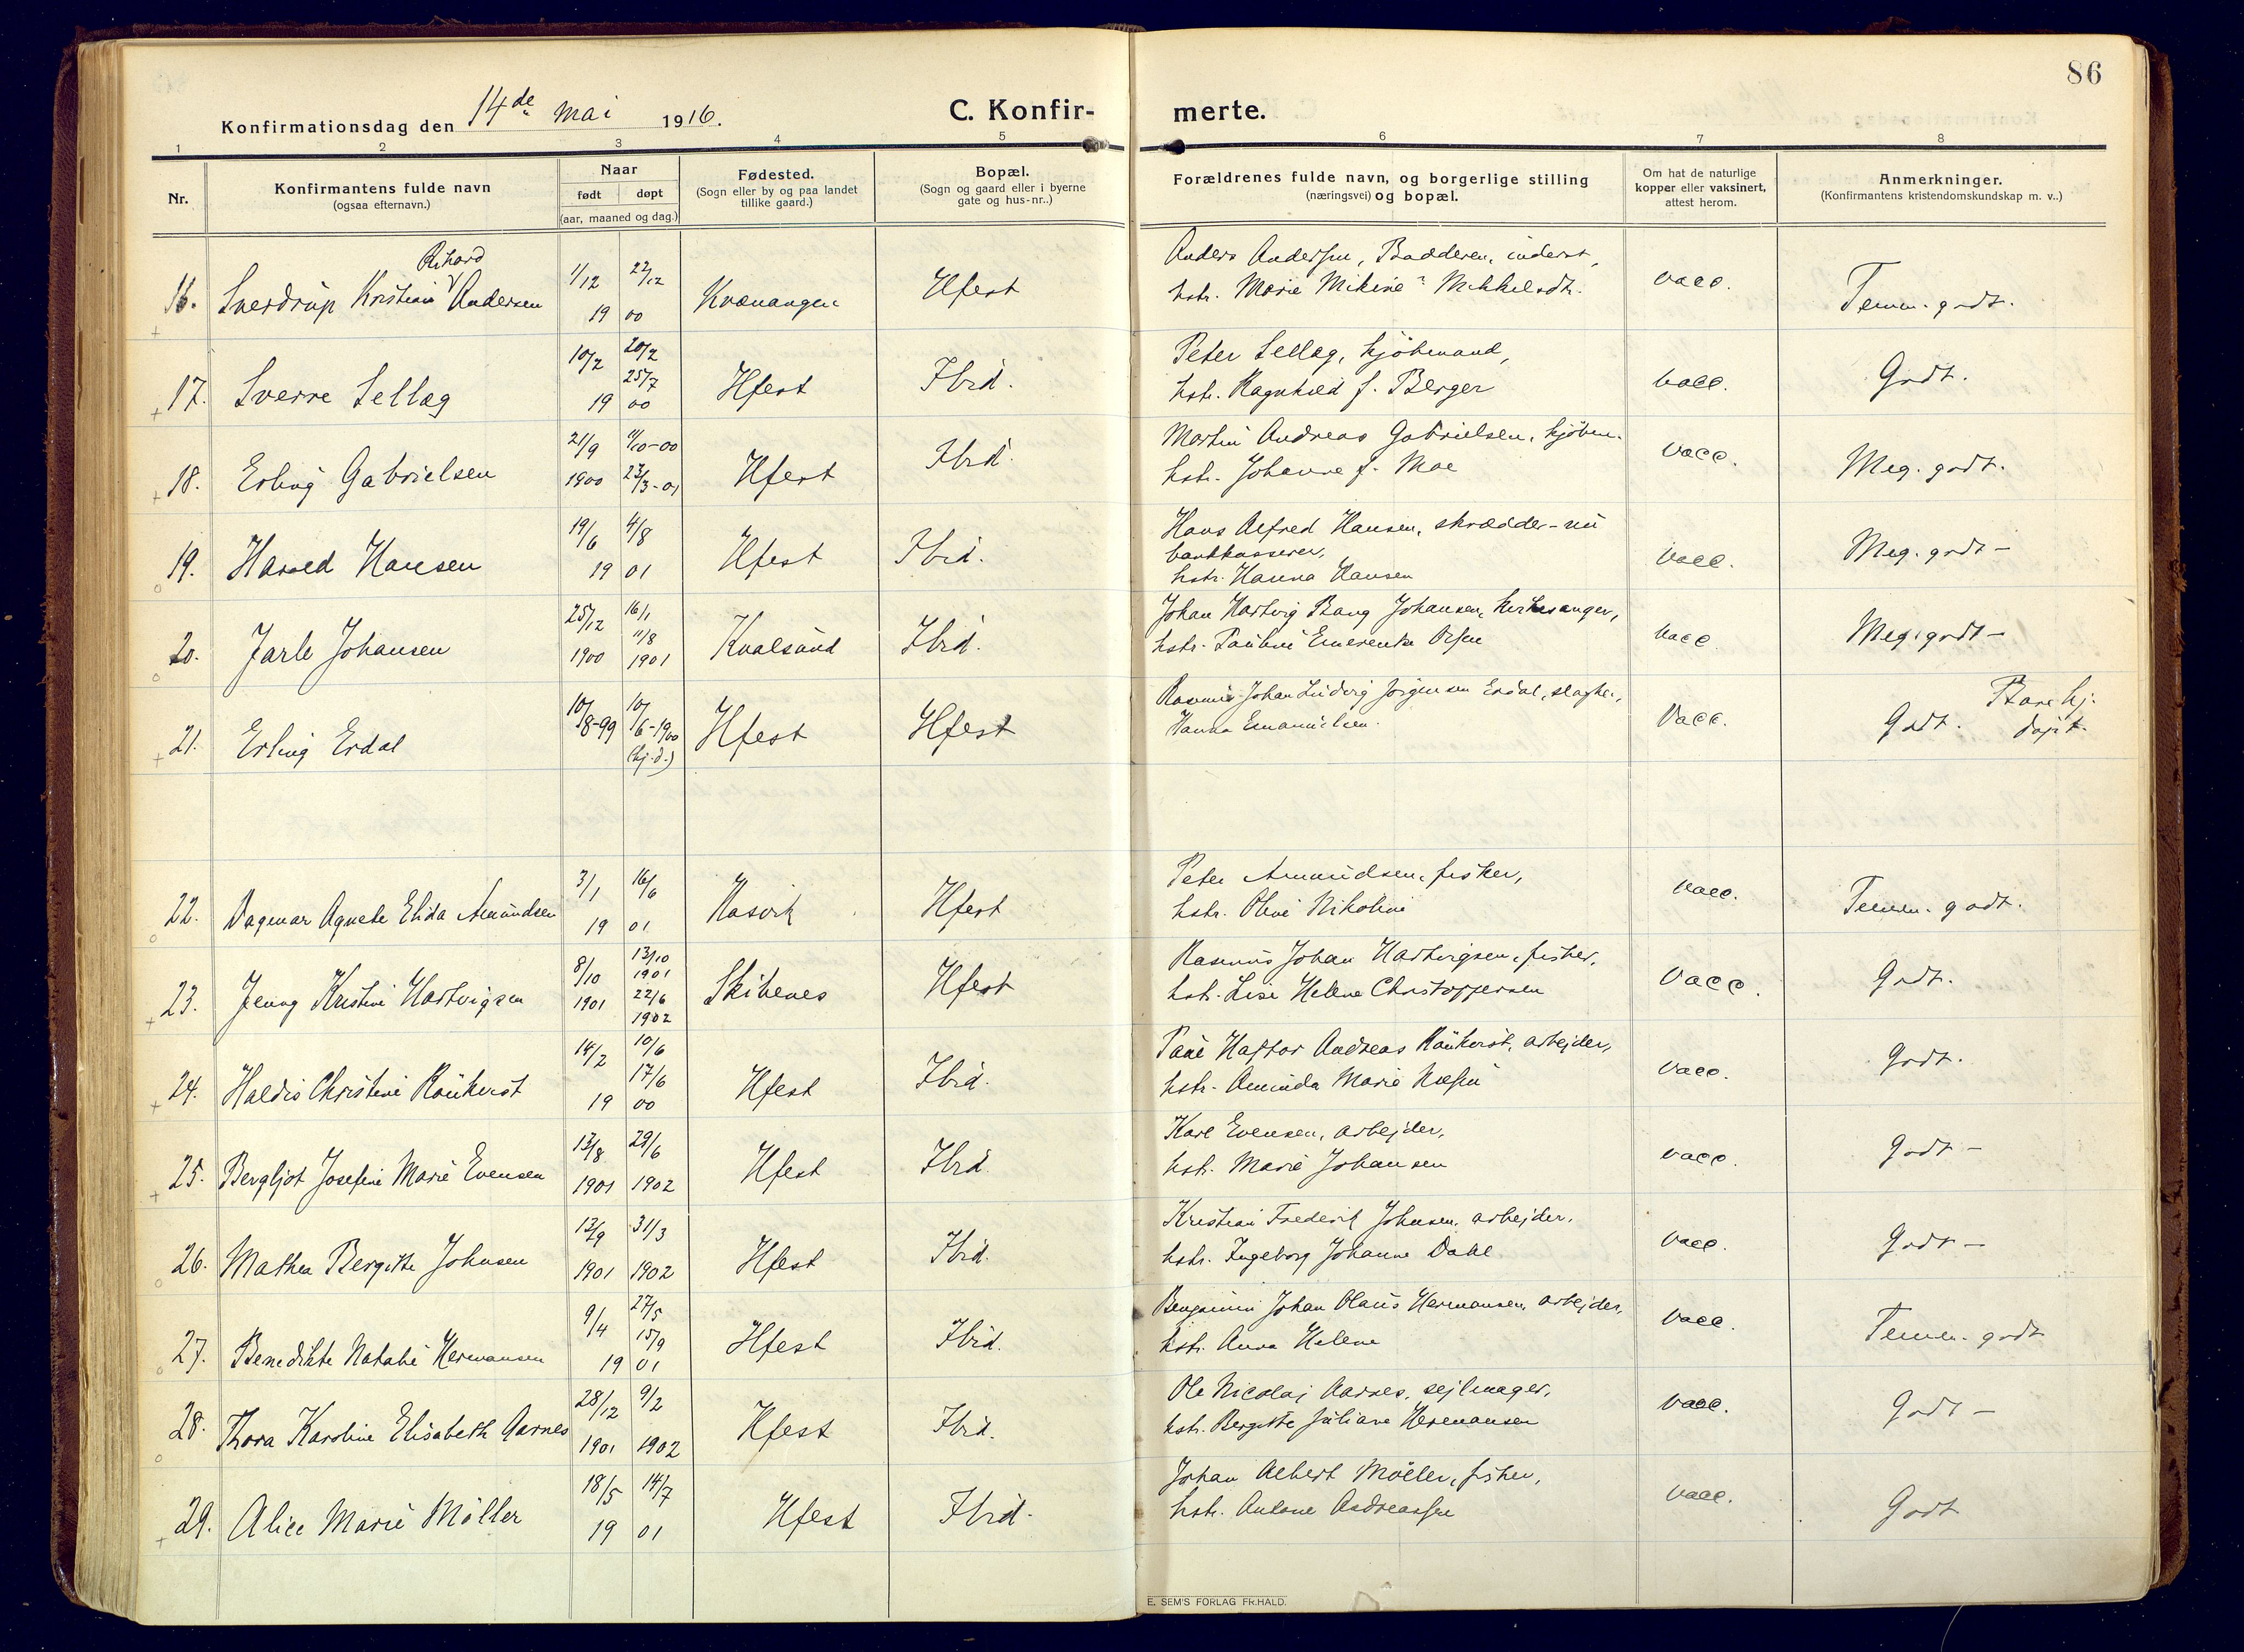 86
Konfirmationsdag den 14de mai 1916.
C. Konfirmerte.
1 2 3 4 5 6 7 8
Nr.
Konfirmantens fulde navn
(ogsaa efternavn.)
Naar
født døpt
(aar, maaned og dag.)
Fødested.
(Sogn eller by og paa landet
tillike gaard.)
Bopæl.
(Sogn og gaard eller i byerne
gate og hus-nr..)
Forældrenes fulde navn, og borgerlige stilling
(næringsvei) og bopæl.
Om hat de naturlige
kopper eller vaksinert,
attest herom.
Anmerkninger.
(Konfirmantens kristendomskundskap m. v..)
Rihard
16. Sverdrup Kristian Andersen 1/12 22/12 19 00 Kvænangen Hfest
Anders Andersen, Badderen, inderst,
hstr. Marie Mikine Mikkelsdtr. vacc. Temm. godt.
+
17. Sverre Sellæg 10/2 20/2 25/7 19 00 Hfest Ibid.
Peter Sellæg, kjöbmand,
hstr. Ragnhild f. Berger vacc. Godt.
+
18. Erling Gabrielsen 21/9 1900 11/10-00 23/3-01 Hfest Ibid.
Martin Andreas Gabrielsen, kjöbm.
hstr. Johanne f. Moe vacc. Meg. godt.
+
19. Harald Hansen 19/6 4/8 19 01 Hfest Ibid.
Hans Alfred Hansen, skrædder - nu
bankkasserer,
hstr. Hanna Hansen vacc. Meg. godt -
o
20. Jarle Johansen 25/12 1900 16/1 11/8 1901 Kvalsund Ibid.
Johan Hartvig Bang Johansen, kirkesanger,
hstr. Pauline Emerentse Olsen vacc. Meg. godt -
o
21. Erling Erdal 10/8-99 10/6-1900 (hj.d.) Hfest Hfest
Rasmus Johan Ludvig Jörgensen Erdal, slagter,
Hanna Emanuelsen. Vacc. Godt. Bare hj.
döpt.
+
22. Dagmar Agnete Elida Amundsen 3/1 16/6 19 01 Hasvik Hfest
Peter Amundsen, fisker,
hstr. Oline Nikoline vacc. Temm. godt.
o
23. Jenny Kristine Hartvigsen 8/10 1901 13/10 1901 22/6 1902 Skibenes Hfest
Rasmus Johan Hartvigsen, fisker,
hstr. Lise Helene Christoffersen Vacc. Godt.
+
24. Haldis Christine Raukvist 14/2 10/6 17/6 19 00 Hfest Ibid.
Paul Haftor Andreas Raukvist, arbejder,
hstr. Aminda Marie vacc. Godt.
+
25. Bergljot Josefine Marie Evensen 13/8 1901 29/6 1902 Hfest Ibid.
Karl Evensen, arbejder,
hstr. Marie Johansen vacc. Godt -
+
26. Mathea Bergitte Johnsen 13/9 1901 31/3 1902 Hfest Ibid.
Kristian Frederik Johnsen, arbejder,
hstr. Ingeborg Johanne Dahl vacc. Godt -
o
27. Benedikte Natalie Hermansen 9/4 27/5 15/9 19 01 Hfest Ibid.
Benjamin Johan Olaus Hermansen, arbejder,
hstr. Anna Helene vacc. Temm. godt
o
28. Thora Karoline Elisabeth Aarnes 28/12 1901 9/2 1902 Hfest Ibid.
Ole Nicolaj Aarnes, sejlmager,
hstr. Bergitte Juliane Hermansen vacc. Godt -
o
29. Alice Marie Möller 18/5 14/7 19 01 Hfest Ibid.
Johan Albert Möller, fisker,
hstr. Antone Andreassen vacc. Godt
+
E. SEM'S FORLAG FR.HALD.